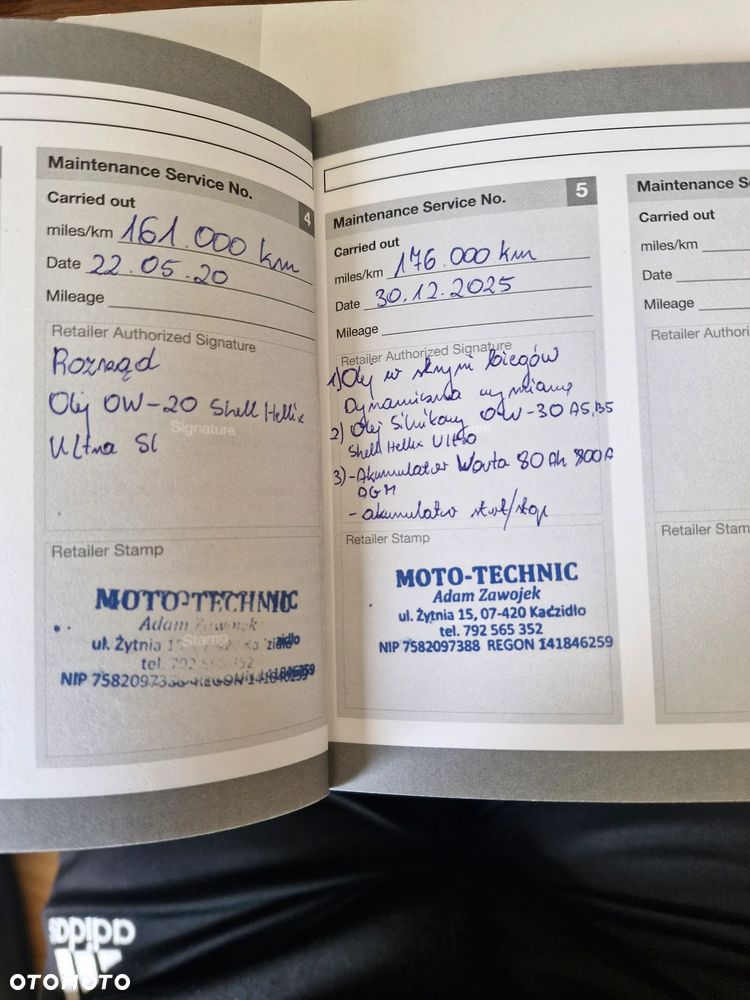 Maintenance Service No.
4
Carried out
miles/km 161.000 km
Date 22.05.20
Mileage
Retailer Authorized Signature
Rozrząd
Olej 0W-20 Shell Hellix
Signature
Ultra
Retailer Stamp
MOTO-TECHNIC
Adam Zawojek
ul. Żytnia
Stamp
tel. 792 565 352
NIP 7582097388 REGON 141846259
Maintenance Service No.
5
Carried out
miles/km 176.000 km
Date 30.12.2025
Mileage
Retailer Authorized Signature
1) Olej w skrzyni biegów
Dynamiczna wymiana
2) Olej Silnikowy 0W-30 A5,B5
Shell Hellix Ultra
3) - Akumulator Warta 80Ah 800A
AGM
- akumulator start/stop
Retailer Stamp
MOTO-TECHNIC
Adam Zawojek
ul. Żytnia 15, 07-420 Kadzidło
tel. 792 565 352
NIP 7582097388 REGON 141846259
Maintenance
Carried out
miles/km
Date
Mileage
Retailer
Retailer Stamp
adidas
OTOMOTO